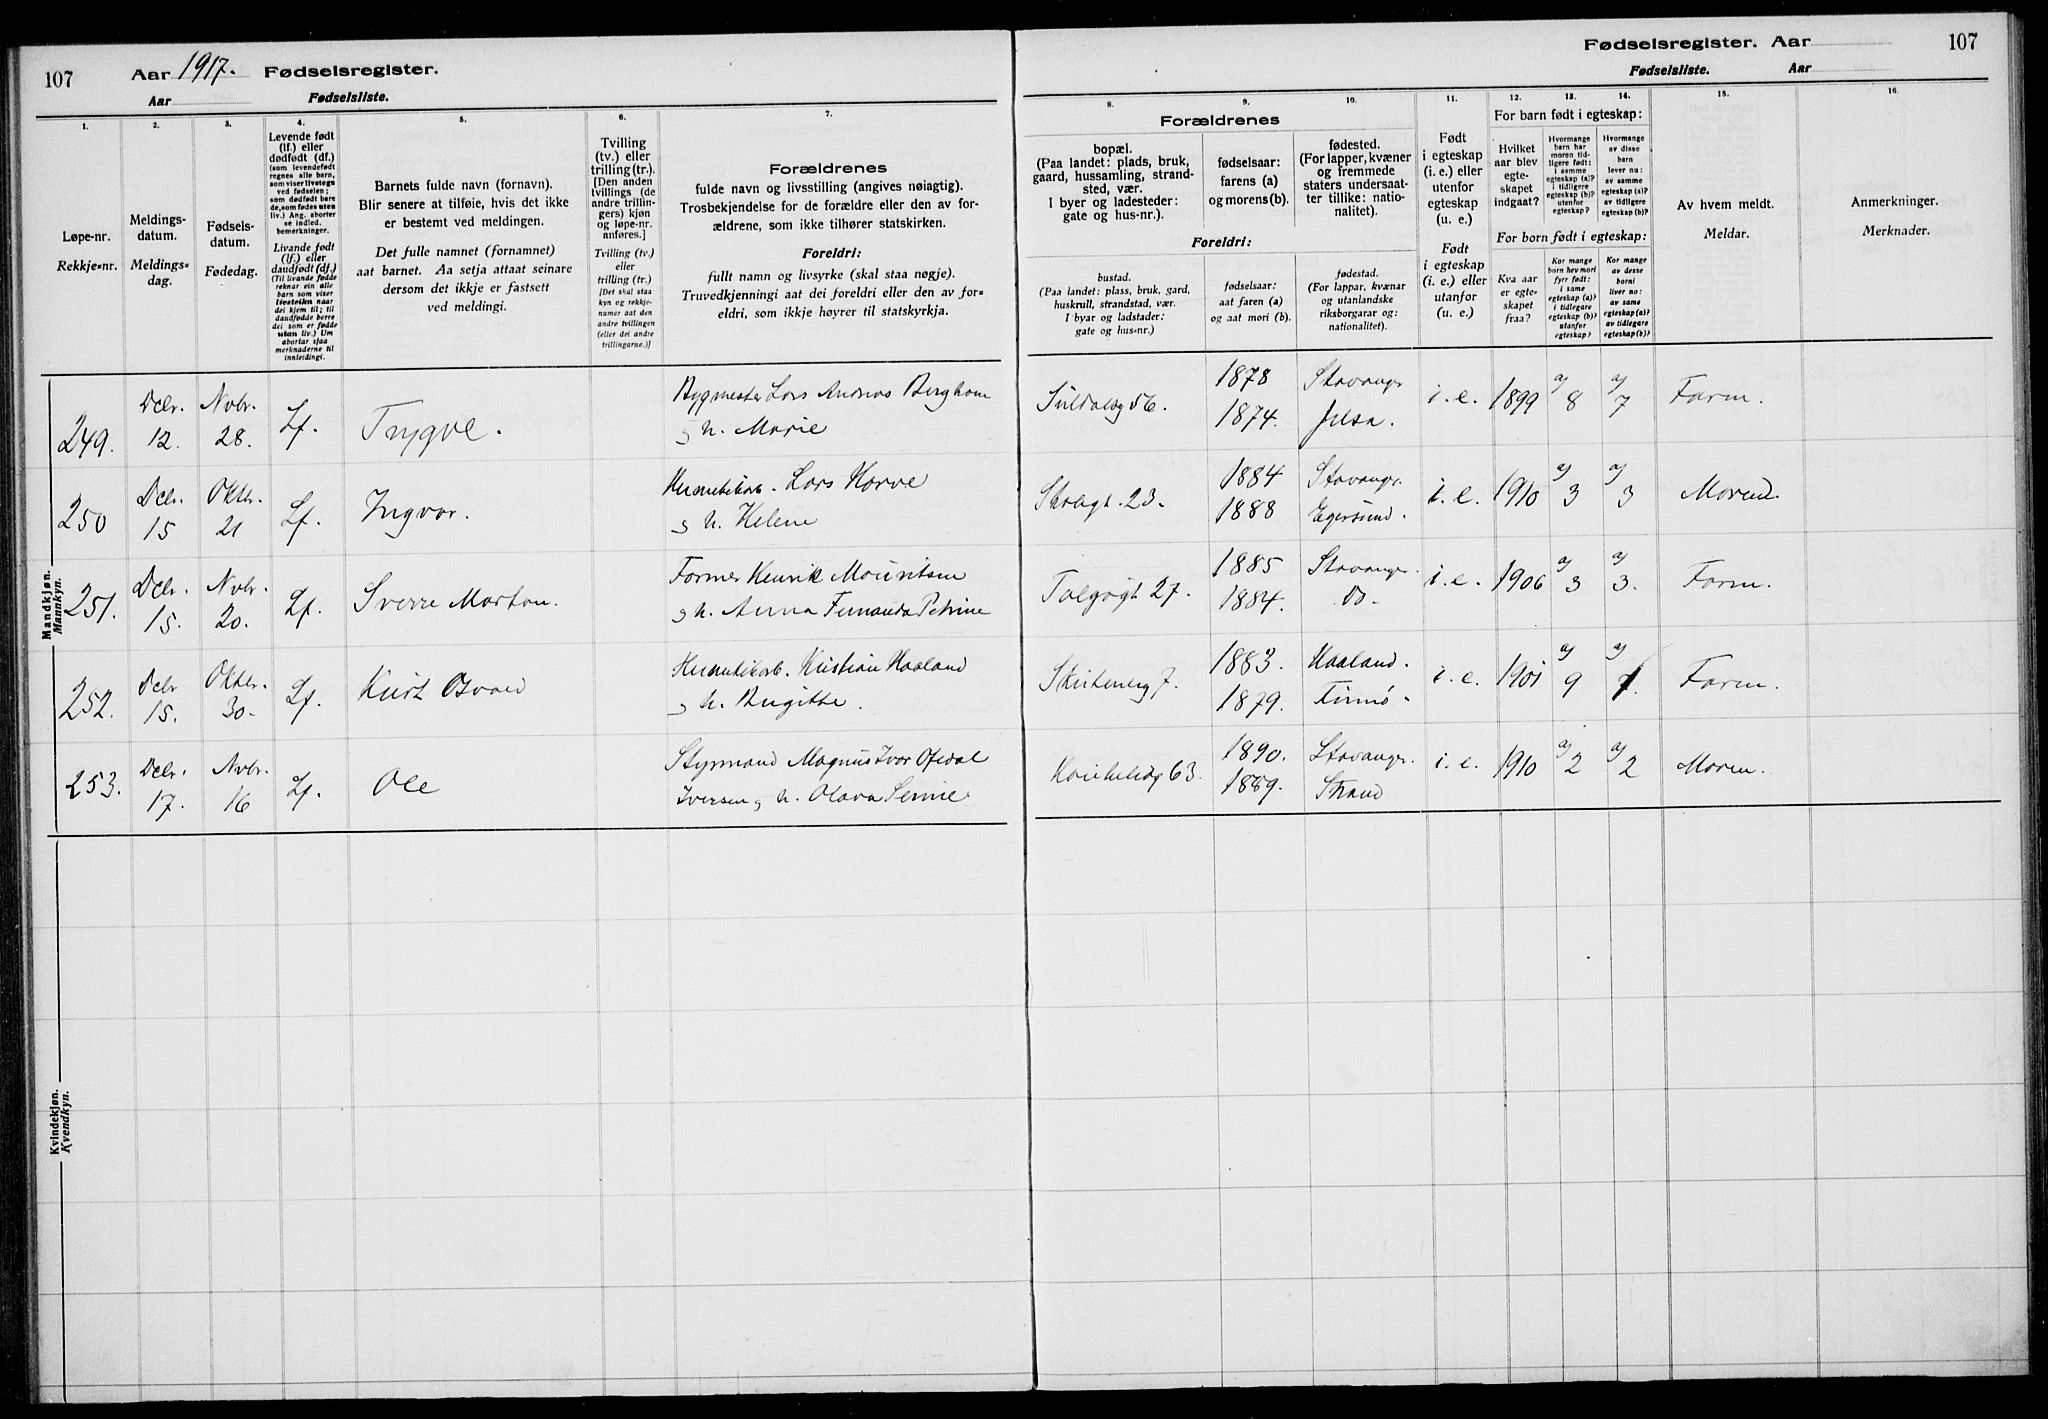 107
Aar 1917. Fødselsregister.
Aar Fødselsliste.
1.
2.
3.
4.
5.
6.
7.
Løpe-nr.
Rekkje=nr.
Meldings-
datum.
Meldings=
dag.
Fødsels-
datum.
Fødedag.
Levende født
(lf.) eller
dødfødt (df.)
(som levendefødt
regnes alle barn,
som viser livstegn
ved fødselen;
som dødfødt bare
de, som fødes uten
liv.) Ang. aborter
se indled.
bemerkninger.
Livande født
(lf.) eller
daudfødt (df.)
(Til livande fødde
reknar ein alle
barn som viser
livsteikn naar
dei kjem til; til
daudfødde berre
dei som er fødde
utan liv.) Um
abortar sjaa
merknaderne til
innleidingi.
Barnets fulde navn (fornavn).
Blir senere at tilføie, hvis det ikke
er bestemt ved meldingen.
Det fulle namnet (fornamnet)
aat barnet. Aa setja attaat seinare
dersom det ikkje er fastsett
ved meldingi.
Tvilling
(tv.) eller
trilling (tr.).
[Den anden
tvillings (de
andre trillin-
gers) kjøn
og løpe-nr.
anføres.]
Tvilling (tv.)
eller
trilling (tr.)
[Det skal staa
kyn og rekkje-
numer aat den
andre tvillingen
(eller dei andre
trillingarne.)]
Forældrenes
fulde navn og livsstilling (angives nøiagtig).
Trosbekjendelse for de forældre eller den av for-
ældrene, som ikke tilhører statskirken.
Foreldri:
fullt namn og livsyrke (skal staa nøgje).
Truvedkjenningi aat dei foreldri eller den av for=
eldri, som ikkje høyrer til statskyrkja.
Mandkjøn.
Mannkyn.
249.
Dcbr. 12.
Nvbr. 28.
Lf.
Trygve.
Bygmester Lars Andreas Berghom
og h. Marie
250
Dcbr. 15
Oktbr. 21
Lf.
Ingvar.
Hermetikarb. Lars Harve
og h. Helene
251.
Dcbr. 15.
Nvbr. 20.
Lf.
Sverre Marton.
Former Henrik Mauritsen
og h. Anna Fernanda Petrine
252.
Dcbr 15.
Oktbr. 30-
Lf.
Kurt Osvald
Hermetikarb. Kristian Haaland
og h. Birgitte.
253.
Dcbr. 17.
Nvbr. 16
Lf.
Ole
Styrmand Magnus Ivar Ofedal
Iversen og h. Olava Serine
Kvindekjøn.
Kvendkyn.
Fødselsregister. Aar
107
Fødselsliste. Aar
8.
9.
10.
11.
12.
13.
14.
15.
16.
Forældrenes
bopæl.
(Paa landet: plads, bruk,
gaard, hussamling, strand-
sted, vær.
I byer og ladesteder:
gate og hus-nr.).
fødselsaar:
farens (a)
og morens (b).
fødested.
(For lapper, kvæner
og fremmede
staters undersaat-
ter tillike: natio-
nalitet).
Foreldri:
bustad.
(Paa landet: plass, bruk, gard,
huskrull, strandstad, vær.
I byar og ladstader:
gate og hus-nr.)
fødselsaar:
aat faren (a)
og aat mori (b).
fødestad.
(For lappar, kvænar
og utanlandske
riksborgarar og:
nationalitet).
Født
i egteskap
(i. e.) eller
utenfor
egteskap
(u. e.)
Født
i egteskap
(i. e.) eller
utanfor
(u. e.)
For barn født i egteskap:
Hvilket
aar blev
egte-
skapet
indgaat?
Hvormange
barn har
moren tid-
ligere født:
i samme
egteskap (a)?
i tidligere
egteskap (b)?
utenfor
egteskap?
Hvormange
av disse
barn
lever nu:
av samme
egteskap (a)?
av tidligere
egteskap (b)?
For born født i egteskap:
Kva aar
er egte-
skapet
fraa?
Kor mange
born hev mori
fyrr født:
i same
egteskap (a)?
i tidlegare
egteskap (b)?
utanfor
egteskap?
Kor mange
av desse
borni
liver no:
av same
egteskap (a)?
av tidlegare
egteskap (b)?
Av hvem meldt.
Meldar.
Anmerkninger.
Merknader.
Suldalsg 56.
1878
1874.
Stavanger
Jelsa.
i. e.
1899
a/ 8
a/ 7
Faren.
Skolegt. 23.
1884
1888
Stavanger.
Egersund.
i. e.
1910
a/ 3
a/ 3
Moren.
Talgøgt 27.
1885
1884.
Stavanger.
Do-
i. e.
1906
a/ 3
a/ 3.
Faren.
7.
1883.
1879.
Haaland.
Finnø.
i. e.
1901
a/ 9
a/
Faren.
63.
1890.
1889.
Stavanger.
Strand
i. e.
1910
a/ 2
a/ 2
Moren.